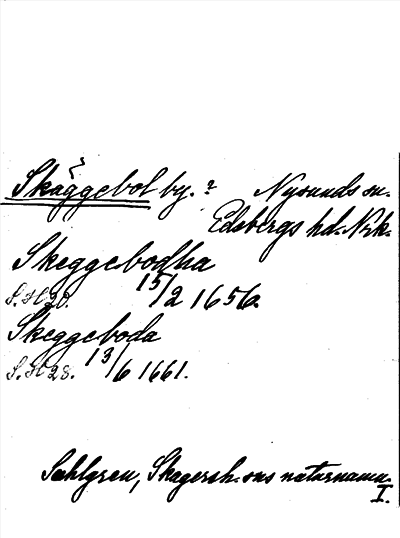 Skäggebol by.? Nysunds sn.
Edsbergs hd. Nrk.
Skeggebodha
S. H 20. 15/2 1656.
Skeggeboda
S. H 28. 13/6 1661.
Sahlgren, Skagersh. sns naturnamn.
I.